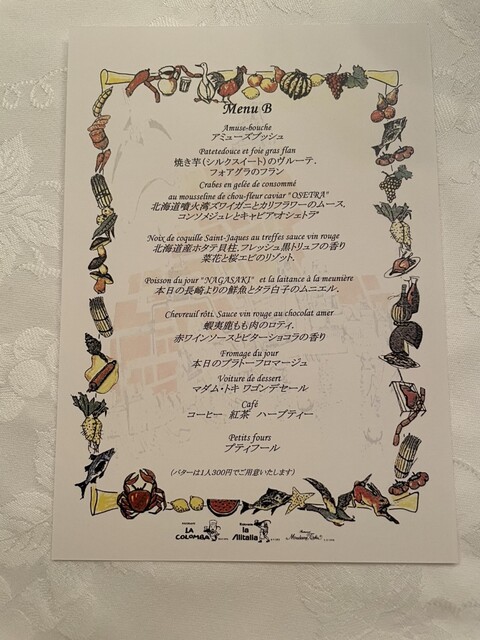 Menu B
Amuse-bouche
アミューズブッシュ
Patetedouce et foie gras flan
焼き芋(シルクスイート)のヴルーテ、
フォアグラのフラン
Crabes en gelée de consommé
au mousseline de chou-fleur caviar "OSETRA"
北海道噴火湾ズワイガニとカリフラワーのムース、
コンソメジュレとキャビア"オシェトラ"
Noix de coquille Saint-Jaques au treffes sauce vin rouge
北海道産ホタテ貝柱、フレッシュ黒トリュフの香り
菜花と桜エビのリゾット、
Poisson du jour "NAGASAKI" et la laitance à la meunière
本日の長崎よりの鮮魚とタラ白子のムニエル、
Chevreuil rôti. Sauce vin rouge au chocolat amer
蝦夷鹿もも肉のロティ、
赤ワインソースとビターショコラの香り
Fromage du jour
本日のプラトーフロマージュ
Voiture de dessert
マダム・トキ ワゴンデセール
Café
コーヒー 紅茶 ハーブティー
Petits fours
プティフール
(バターは1人300円でご用意いたします)
LA COLOMBA
la Alitalia
Madame Toki